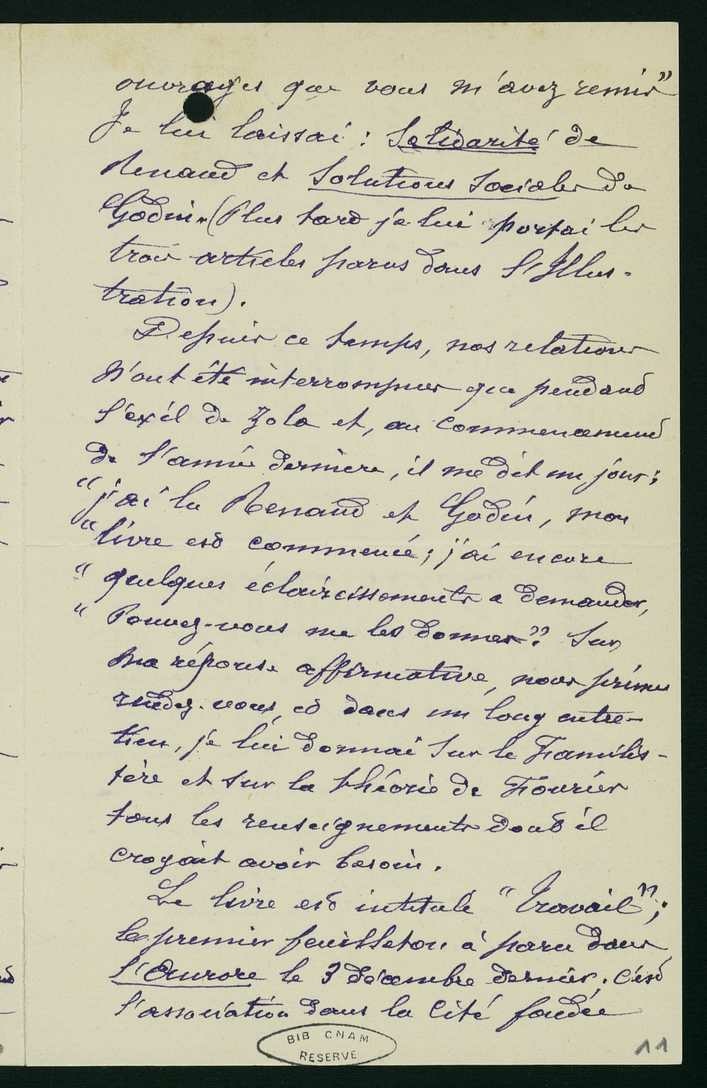 ouvrages que vous m'avez remis"
Je lui laissai : Solidarité de
Renaud et Solutions Sociales de
Godin. (Plus tard je lui portai les
trois articles parus dans l'Illus-
tration).
Depuis ce temps, nos relations
n'ont été interrompues que pendant
l'exil de Zola et, au commencement
de l'année dernière, il me dit un jour :
"j'ai lu Renaud et Godin, mon
"livre est commencé ; j'ai encore
"quelques éclaircissements a demander,
"Pouvez-vous me les donner ?? Sur
ma réponse affirmative, nous prîmes
rendez-vous, et dans un long entre-
tien, je lui donnai sur le Familis-
tère et sur la théorie de Fourier
tous les renseignements dont il
croyait avoir besoin.
Le livre est intitulé "Travail" ;
le premier feuilleton à paru dans
l'Aurore le 3 décembre dernier, c'est
l'association dans la Cité fondée
BIB CNAM
RESERVE
11